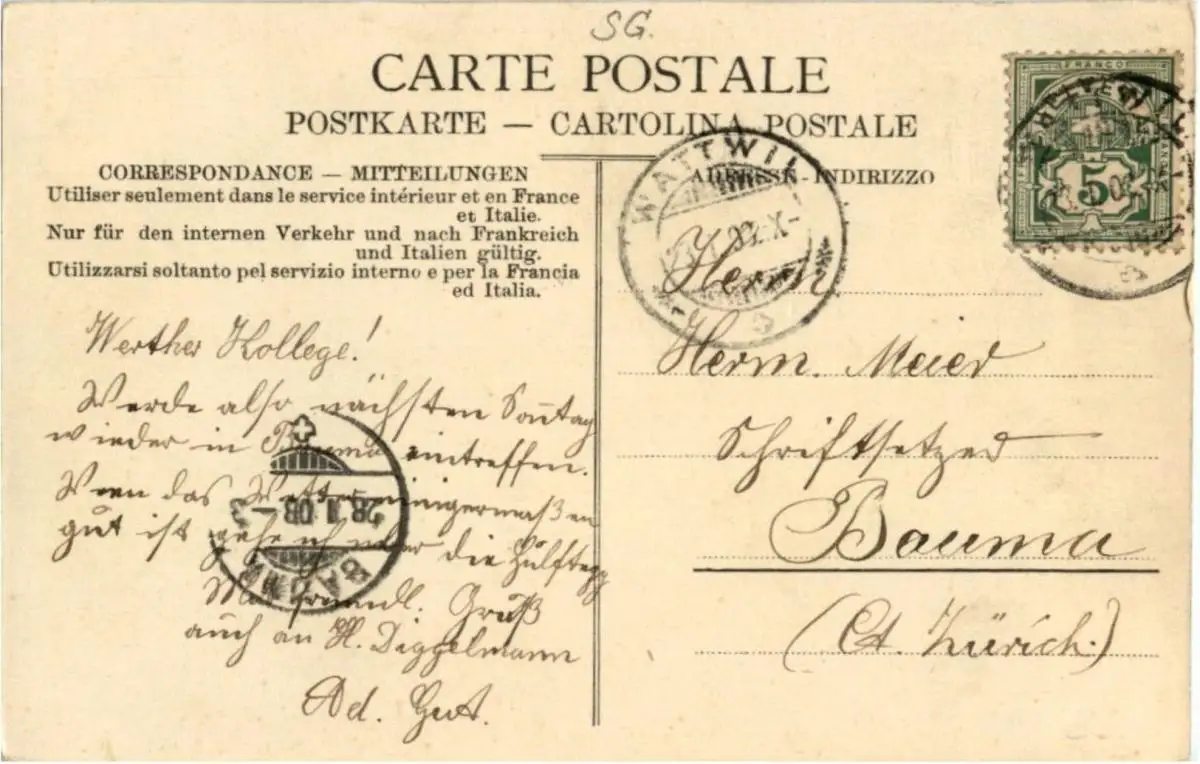 SG.
CARTE POSTALE
POSTKARTE — CARTOLINA POSTALE
CORRESPONDANCE — MITTEILUNGEN
Utiliser seulement dans le service intérieur et en France
et Italie.
Nur für den internen Verkehr und nach Frankreich
und Italien gültig.
Utilizzarsi soltanto pel servizio interno e per la Francia
ed Italia.
Werther Kollege!
Werde also nächsten Sonntag
wieder in Bauma eintreffen.
Wenn das Wetter einigermaßen
gut ist gehe ich über die Hülftegg
Mit freundl. Gruß
auch an H. Diggelmann
Ad. Gut.
ADRESSE - INDIRIZZO
Herrn
Herm. Meier
Schriftsetzer
Bauma
(Ct. Zürich.)
FRANCO
HELVETIA
5
WATTWIL
BAUMA
28. 08 -